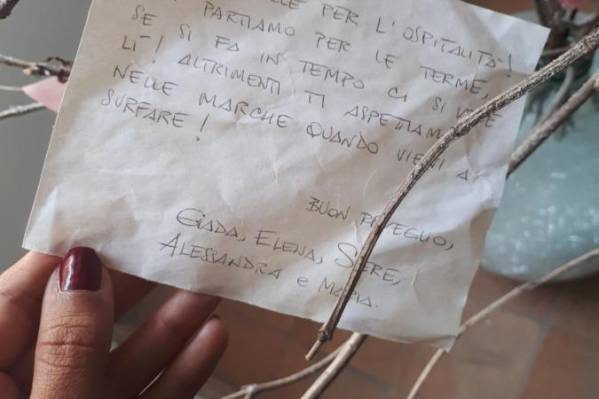 PER L'OSPITALITÀ!
PARTIAMO PER LE TERME,
SE SI FA IN TEMPO CI SI VEDE
LÌ! ALTRIMENTI TI ASPETTIAMO
NELLE MARCHE QUANDO VIENI A
SURFARE!
BUON RISVEGLIO,
GIADA, ELENA, SERE,
ALESSANDRA e MARIA.